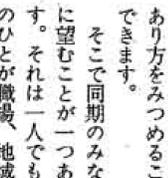 あり方をみつめるこ
できます。
そこで同期のみな
に望むことが一つあ
す。それは一人でも
のひとが職場、地域